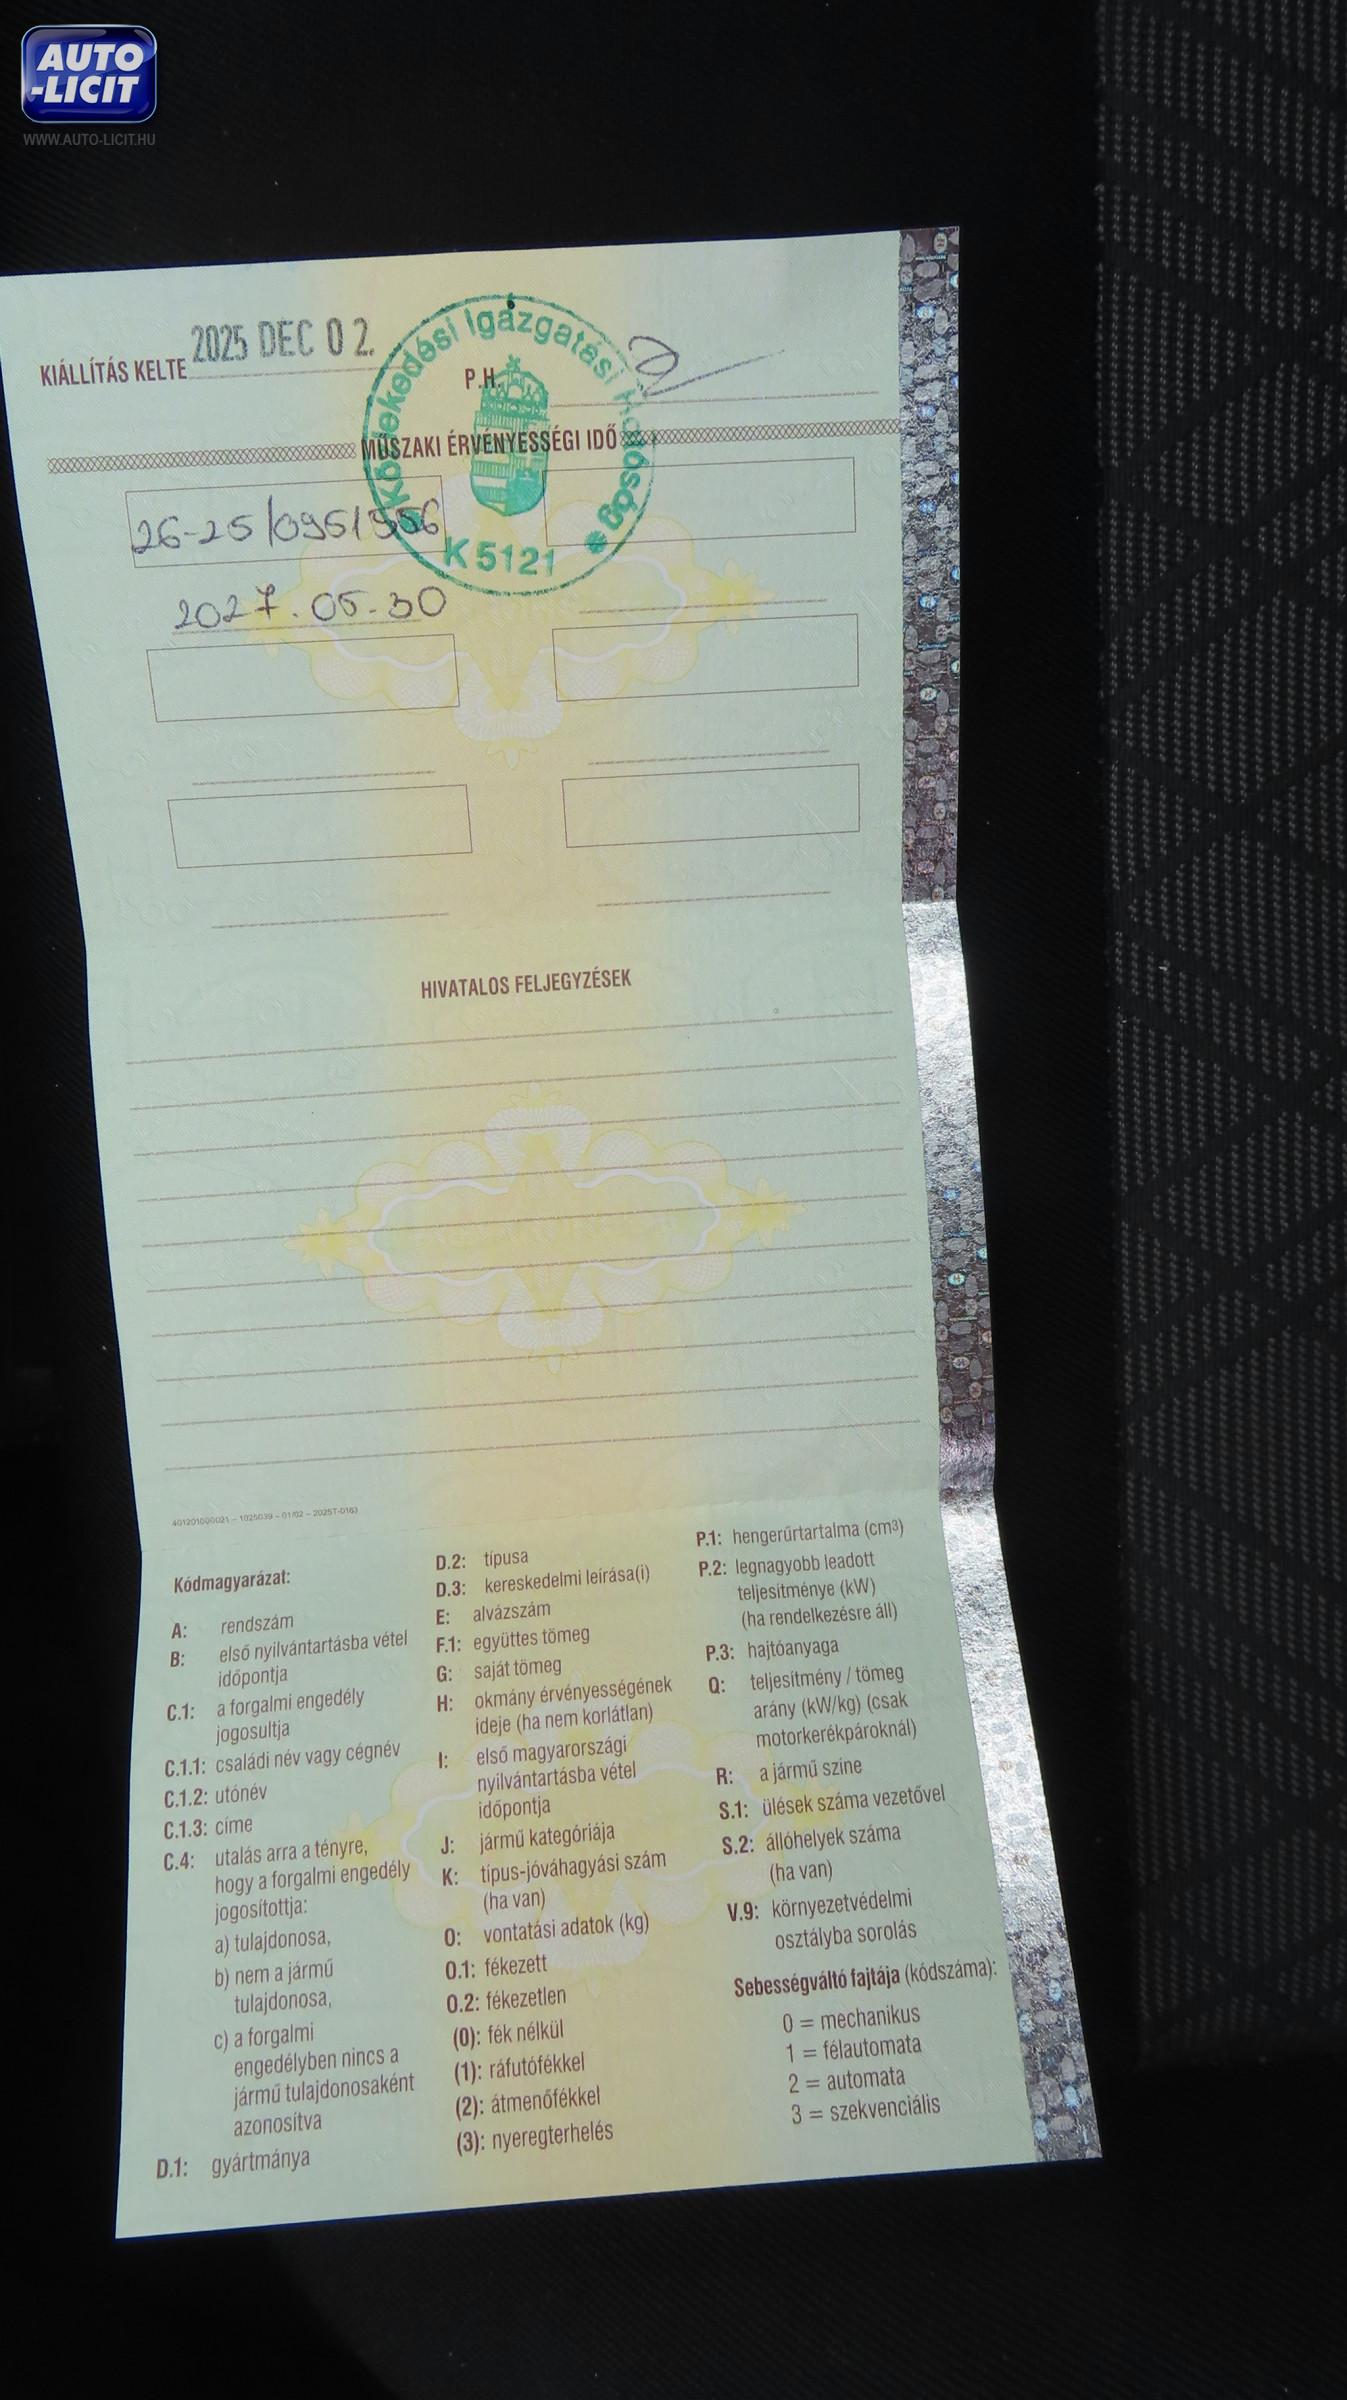 AUTO
-LICIT
WWW.AUTO-LICIT.HU
KIÁLLÍTÁS KELTE 2025 DEC 02.
P.H.
Közlekedési Igazgatási Hatóság
K 5121
MŰSZAKI ÉRVÉNYESSÉGI IDŐ
26-25/0951956
2027.05.30
HIVATALOS FELJEGYZÉSEK
401201000021 – 1025039 – 01/02 – 2025T-0163
Kódmagyarázat:
A: rendszám
B: első nyilvántartásba vétel
időpontja
C.1: a forgalmi engedély
jogosultja
C.1.1: családi név vagy cégnév
C.1.2: utónév
C.1.3: címe
C.4: utalás arra a tényre,
hogy a forgalmi engedély
jogosítottja:
a) tulajdonosa,
b) nem a jármű
tulajdonosa,
c) a forgalmi
engedélyben nincs a
jármű tulajdonosaként
azonosítva
D.1: gyártmánya
D.2: típusa
D.3: kereskedelmi leírása(i)
E: alvázszám
F.1: együttes tömeg
G: saját tömeg
H: okmány érvényességének
ideje (ha nem korlátlan)
I: első magyarországi
nyilvántartásba vétel
időpontja
J: jármű kategóriája
K: típus-jóváhagyási szám
(ha van)
O: vontatási adatok (kg)
O.1: fékezett
O.2: fékezetlen
(0): fék nélkül
(1): ráfutófékkel
(2): átmenőfékkel
(3): nyeregterhelés
P.1: hengerűrtartalma (cm³)
P.2: legnagyobb leadott
teljesítménye (kW)
(ha rendelkezésre áll)
P.3: hajtóanyaga
Q: teljesítmény / tömeg
arány (kW/kg) (csak
motorkerékpároknál)
R: a jármű színe
S.1: ülések száma vezetővel
S.2: állóhelyek száma
(ha van)
V.9: környezetvédelmi
osztályba sorolás
Sebességváltó fajtája (kódszáma):
0 = mechanikus
1 = félautomata
2 = automata
3 = szekvenciális